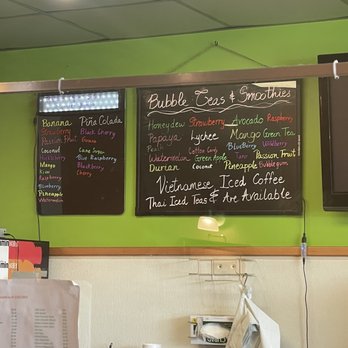 Banana Piña Colada
Strawberry Black Cherry
Passion Fruit Guava
Coconut Cane Sugar
Huckleberry Blue Raspberry
Mango Blackberry
Kiwi Cherry
Raspberry
Blueberry
Pineapple
Bubble Teas & Smoothies
Honeydew Strawberry Avocado Raspberry
Papaya Lychee Mango Green Tea
Peach Coffee BlueBerry
Watermelon Green Apple Taro Passion Fruit
Durian Coconut Pineapple Bubblegum
Vietnamese Iced Coffee
Thai Iced Teas & Are Available